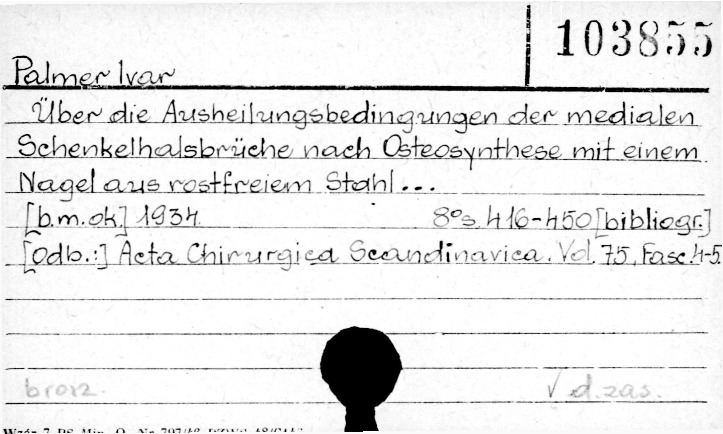 103855
Palmer Ivar
Über die Ausheilungsbedingungen der medialen
Schenkelhalsbrüche nach Osteosynthese mit einem
Nagel aus rostfreiem Stahl...
[b.m.ok.] 1934. 8° s. 416-450 [bibliogr.]
[Odb.:] Acta Chirurgica Scandinavica. Vol. 75, Fasc. 4-5
brosz. V d. zas.
Wzór 7 PS Min. O. Nr 797/46